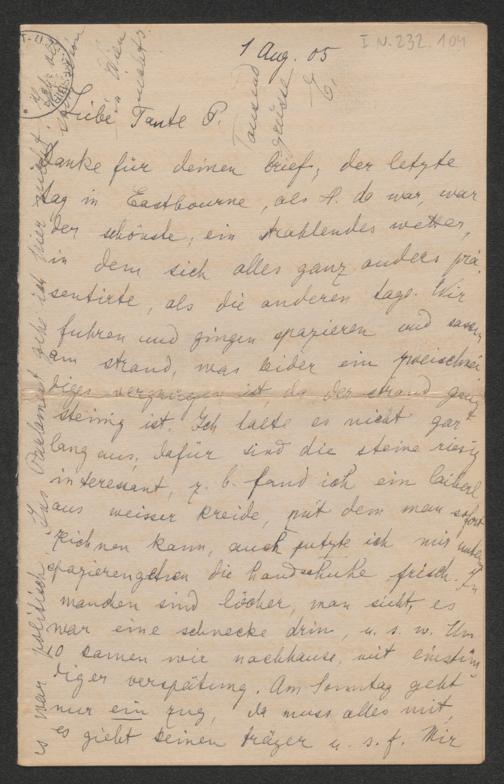 1 Aug. 05
I N. 232.104
Liebe Tante P.
Tausend
grüsse
Danke für deinen brief; der letzte
tag in Eastbourne, als A. da war, war
der schönste, ein strahlendes wetter,
in dem sich alles ganz anders prä-
sentirte, als die anderen tage. Wir
fuhren und gingen spazieren und sassen
am strand, was leider ein zweischnei
diges vergnügen ist da der strand ganz
steinig ist. Ich halte es nicht gar
lang aus, dafür sind die steine riesig
interessant, z. b. fand ich ein laiberl
aus weisser kreide, mit dem man sofort
zeichnen kann, auch putzte ich mir
spazierengehen die handschuhe frisch. In
manchen sind löcher, man sieht, es
war eine schnecke drin, u. s. w. Um
10 kamen wir nachhause, mit einstün
diger verspätung. Am Sonntag geht
nur ein zug, da muss alles mit,
es giebt keinen träger u. s. f. Wir
Ins Parlament gehe ich hier nicht.
es war politisch